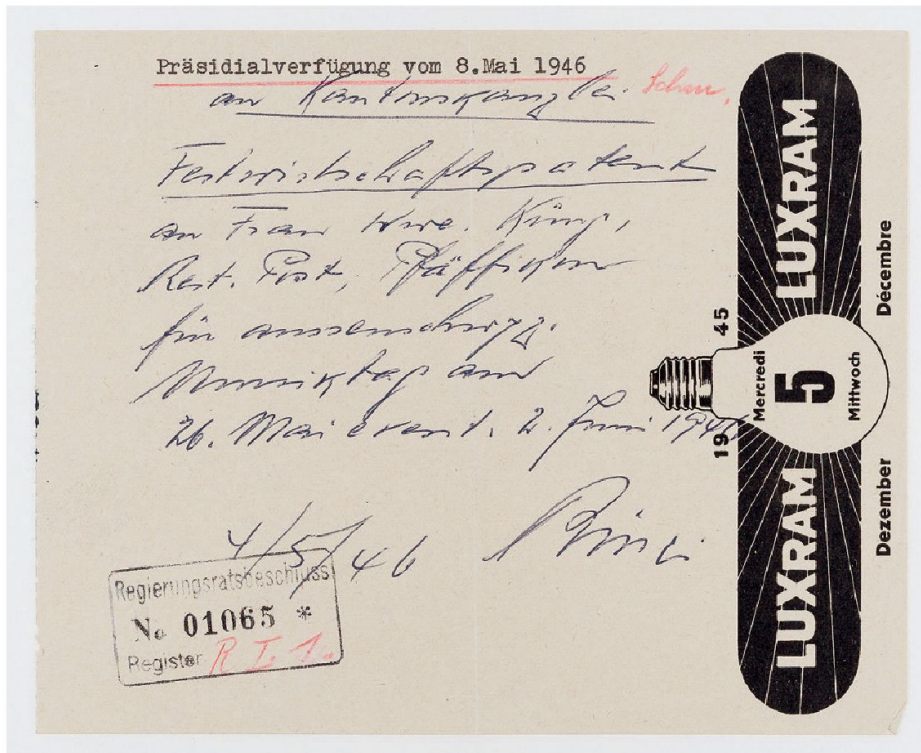 Präsidialverfügung vom 8.Mai 1946
an Kantonskanzlei Schw.
Festwirtschaftspatent
an Frau Wwe.
Rest. Post, Pfäffikon
für ausserschwyz.
Musiktag am
26. Mai event. 2. Juni 1946
4/5/46
Regierungsratsbeschluss
No 01065 *
Register R I 1.
LUXRAM
LUXRAM
19 45
Mercredi
5
Mittwoch
Décembre
Dezember